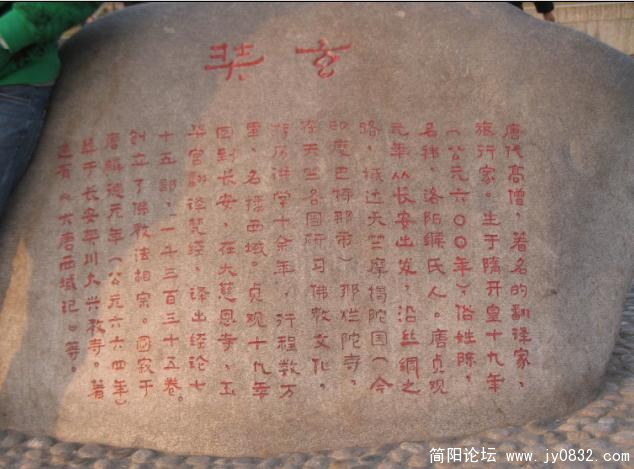 玄奘
唐代高僧，著名的翻译家、
旅行家。生于隋开皇十九年
（公元六〇〇年）俗姓陈，
名祎，洛阳缑氏人。唐贞观
元年从长安出发，沿丝绸之
路，抵达天竺摩揭陀国（今
印度巴特那市）那烂陀寺，
在天竺各国研习佛教文化，
游历讲学十余年，行程数万
里，名播西域。贞观十九年
回到长安，在大慈恩寺、玉
华宫翻译梵经，译出经论七
十五部，一千三百三十五卷。
创立了佛教法相宗。圆寂于
唐麟德元年（公元六六四年）
葬于长安樊川大兴教寺。著
述有《大唐西域记》等。
简阳论坛 www.jy0832.com